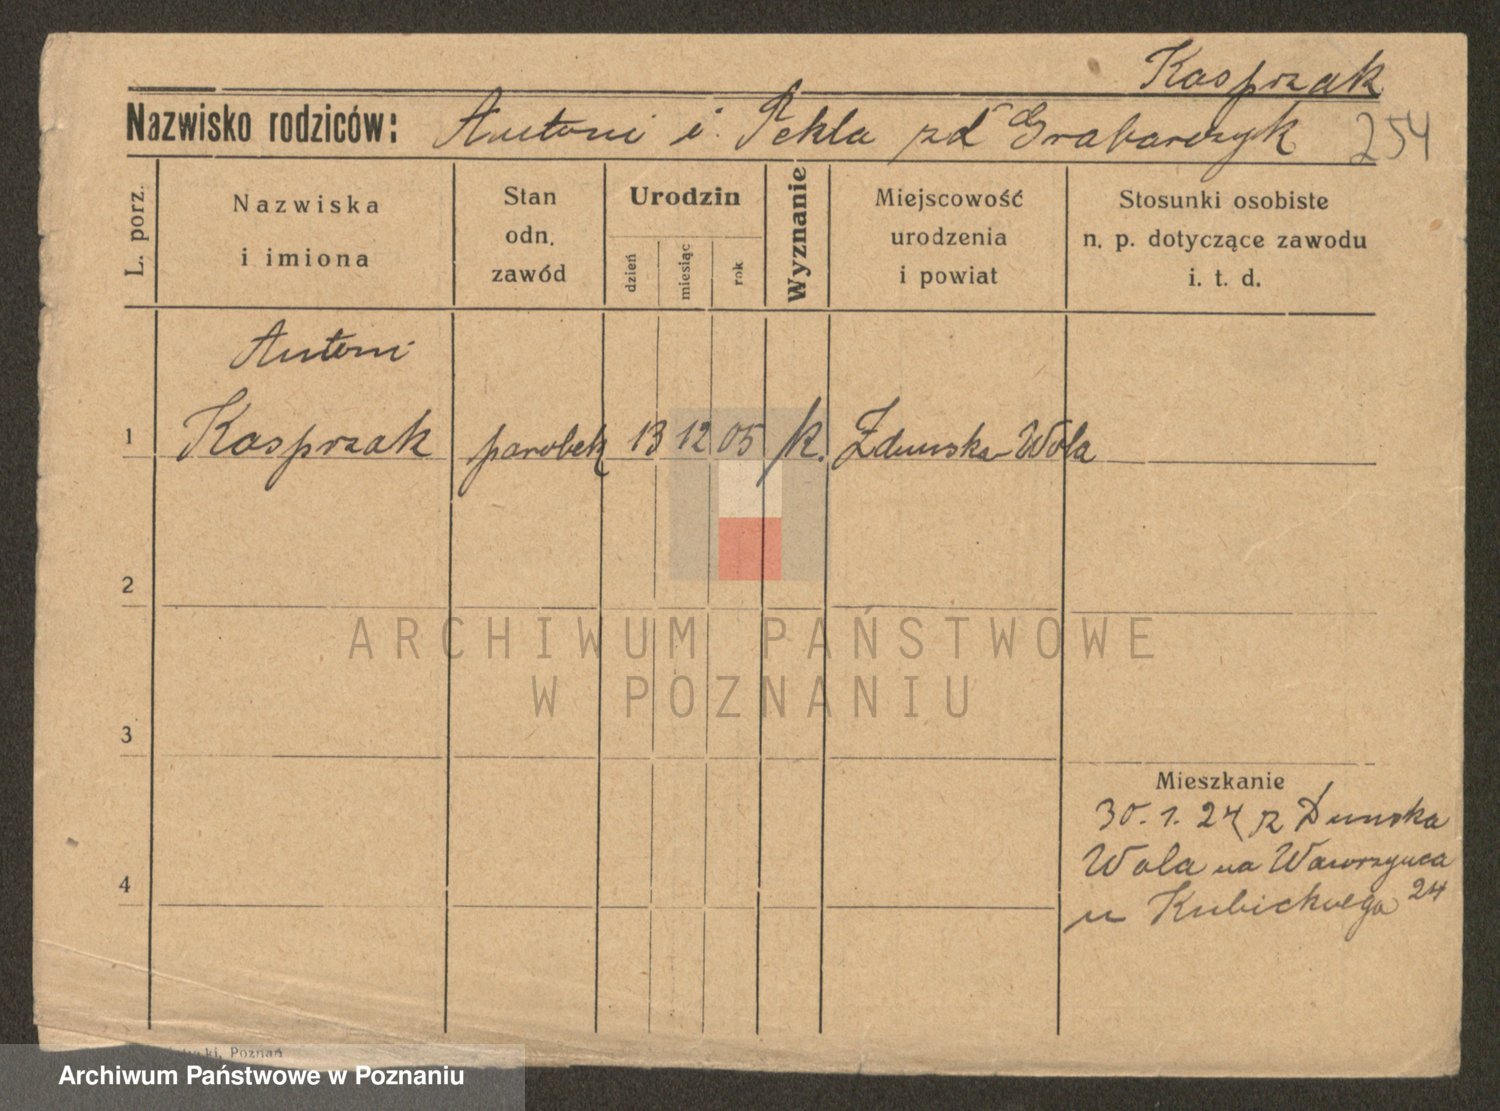 Kasprzak
Nazwisko rodziców: Antoni i Tekla zd Grabarczyk 254
L. porz.
Nazwiska
i imiona
Stan
odn.
zawód
Urodzin
dzień
miesiąc
rok
Wyznanie
Miejscowość
urodzenia
i powiat
Stosunki osobiste
n. p. dotyczące zawodu
i. t. d.
Antoni
1 Kasprzak parobek 13 12 05 k. Zdunska-Wola
2
3
4
Mieszkanie
30. 1. 24 z Dunska
Wola na Wawrzynca
u Kubickiego 24
ki, Poznań
ARCHIWUM PAŃSTWOWE
W POZNANIU
Archiwum Państwowe w Poznaniu